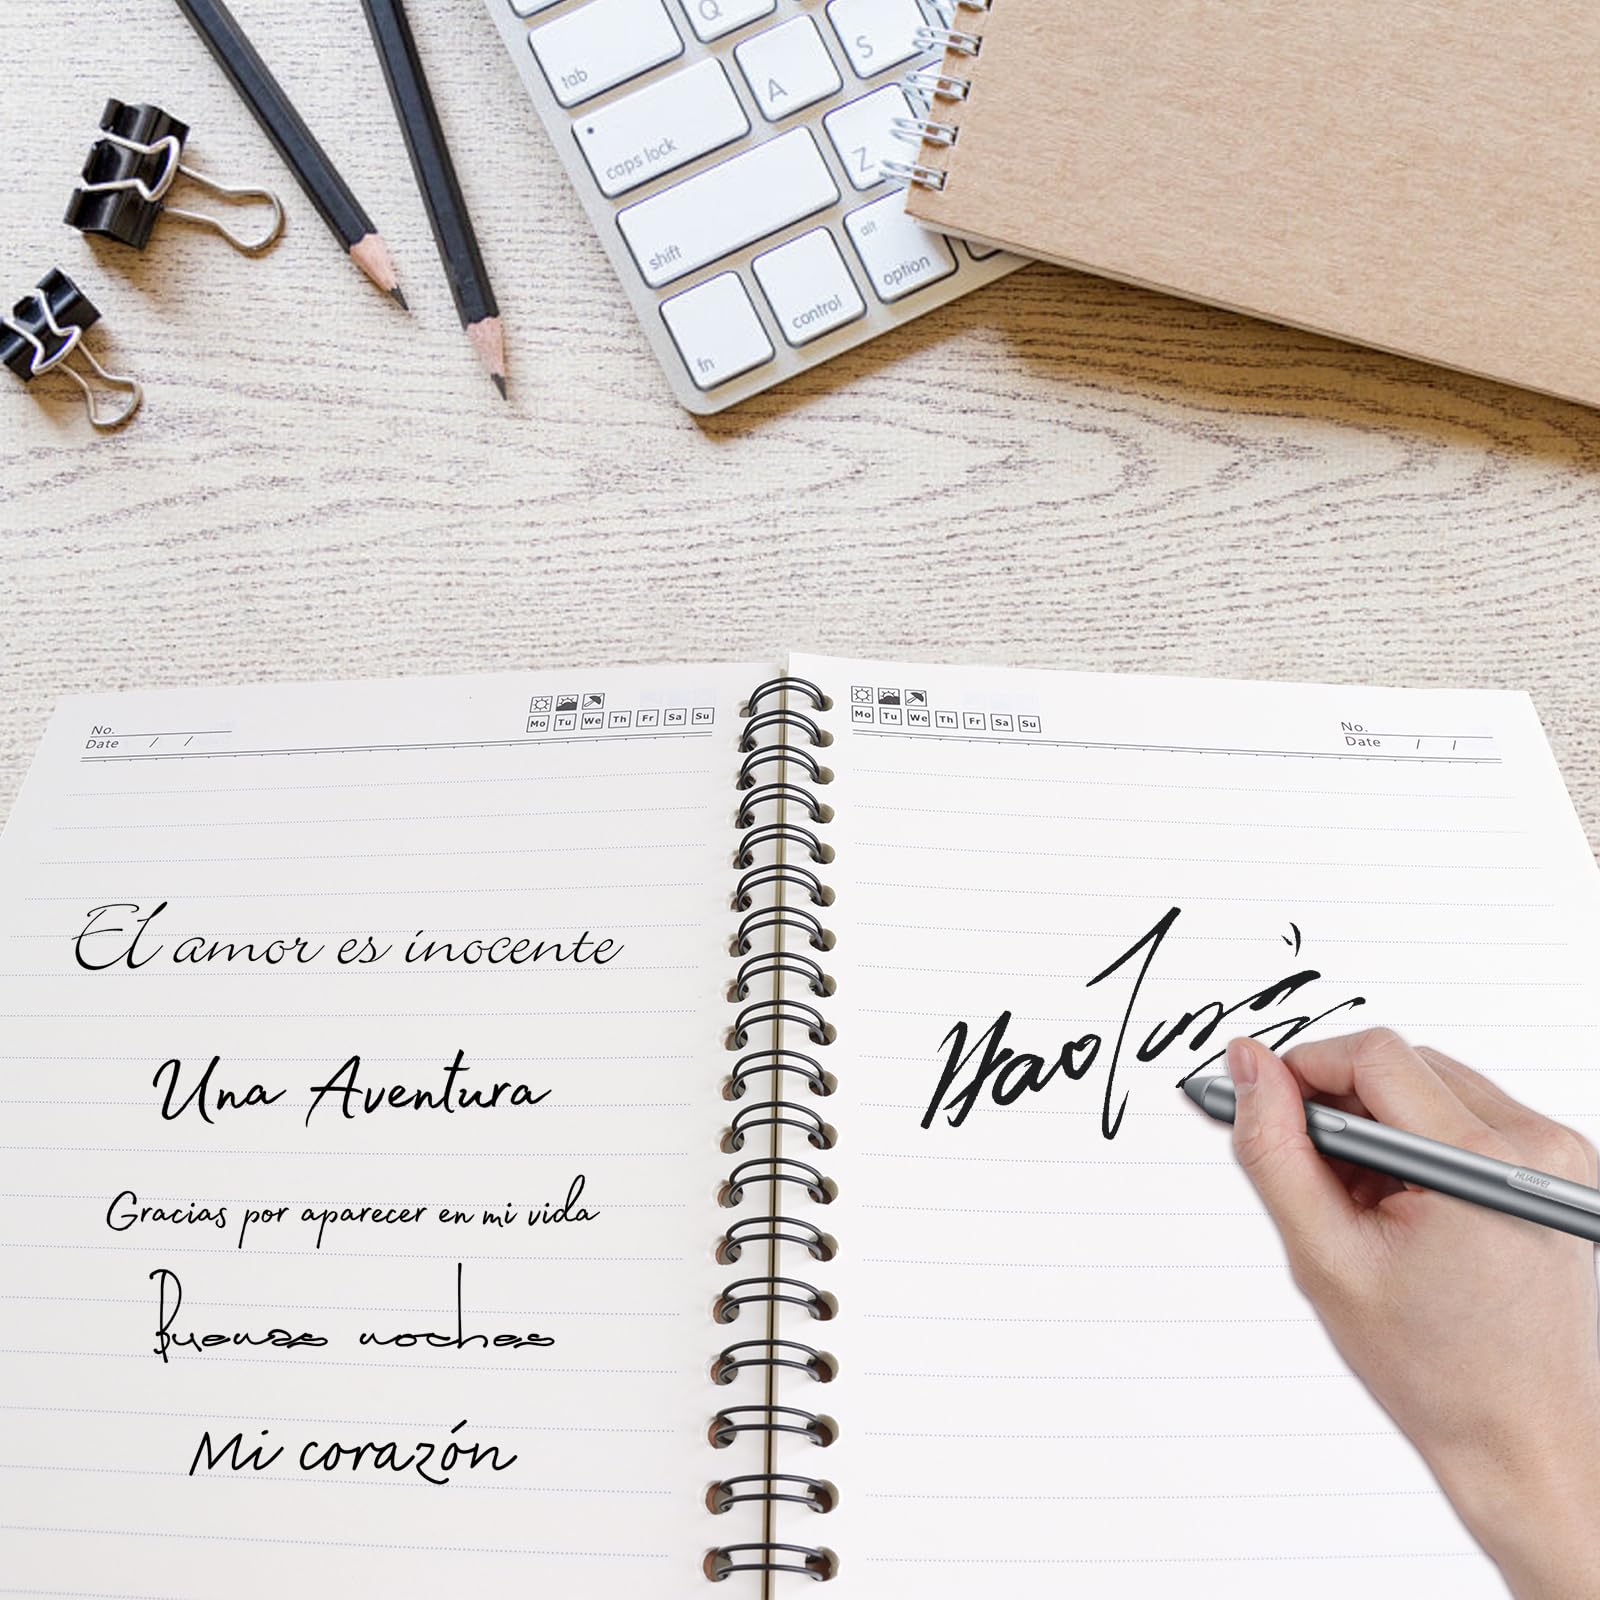 Q
tab
A
S
caps lock
Z
shift
alt
fn
control
option
No.
Date / /
Mo Tu We Th Fr Sa Su
Mo Tu We Th Fr Sa Su
No.
Date / /
El amor es inocente
Una Aventura
Gracias por aparecer en mi vida
Buenas noches
Mi corazón
HUAWEI